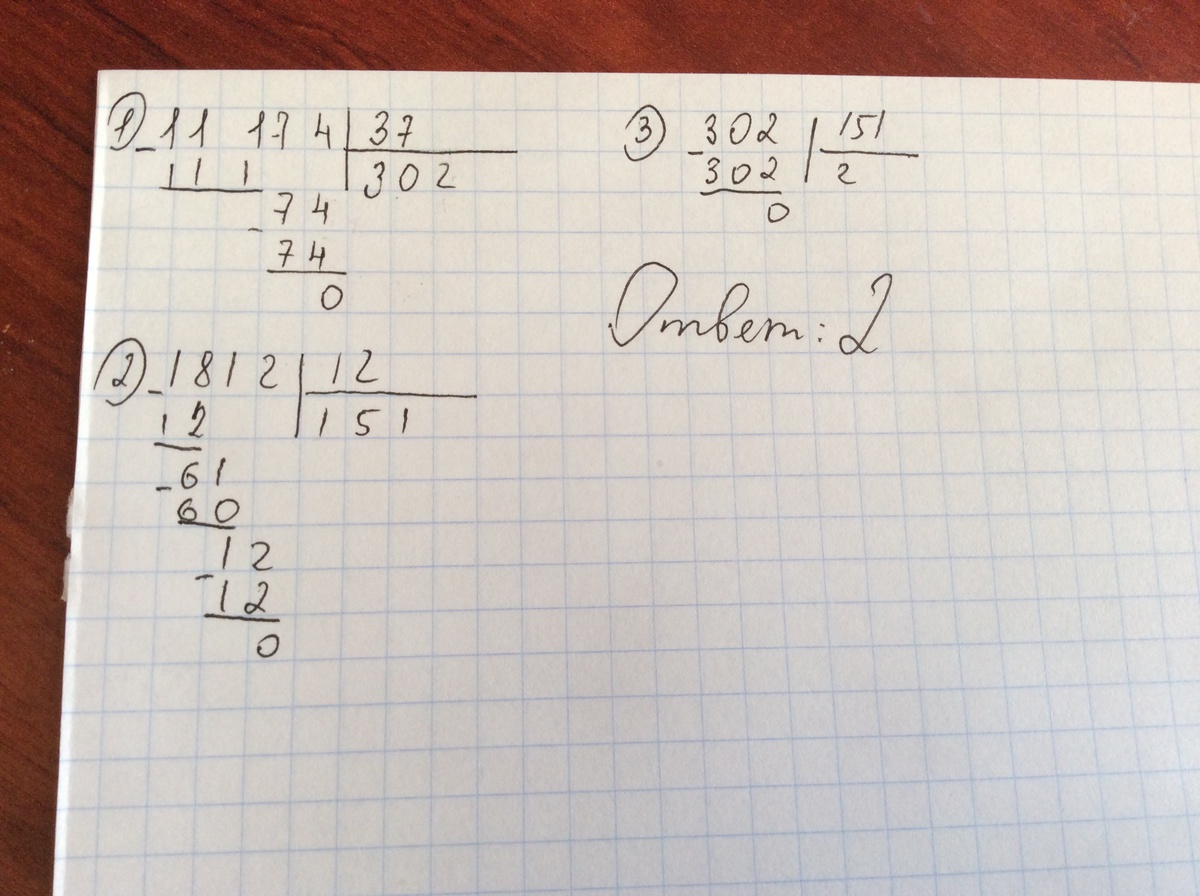 ① - 11 174 | 37
111 | 302
- 74
74
0
② - 1812 | 12
12 | 151
- 61
60
- 12
12
0
③ - 302 | 151
302 | 2
0
Ответ: 2